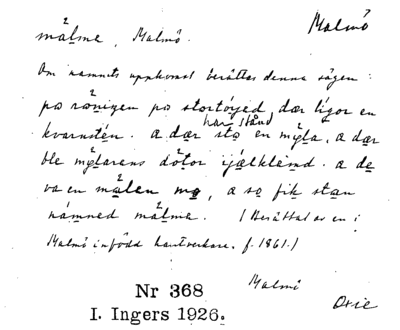 Malmö
målme, Malmö.
Om namnets uppkomst berättas denna sägen:
på röningen på stortöyed, dær ligor en
har stånd
kvarnstén. a dær stø en mỹla, a dær
ble mỹlarens dötor ijälkleimd. a de
va en målen mø, a so fik stan
námned målme. (Berättat av en i
Malmö infödd hantverkare, f. 1861.)
Malmö
Oxie
Nr 368
I. Ingers 1926.